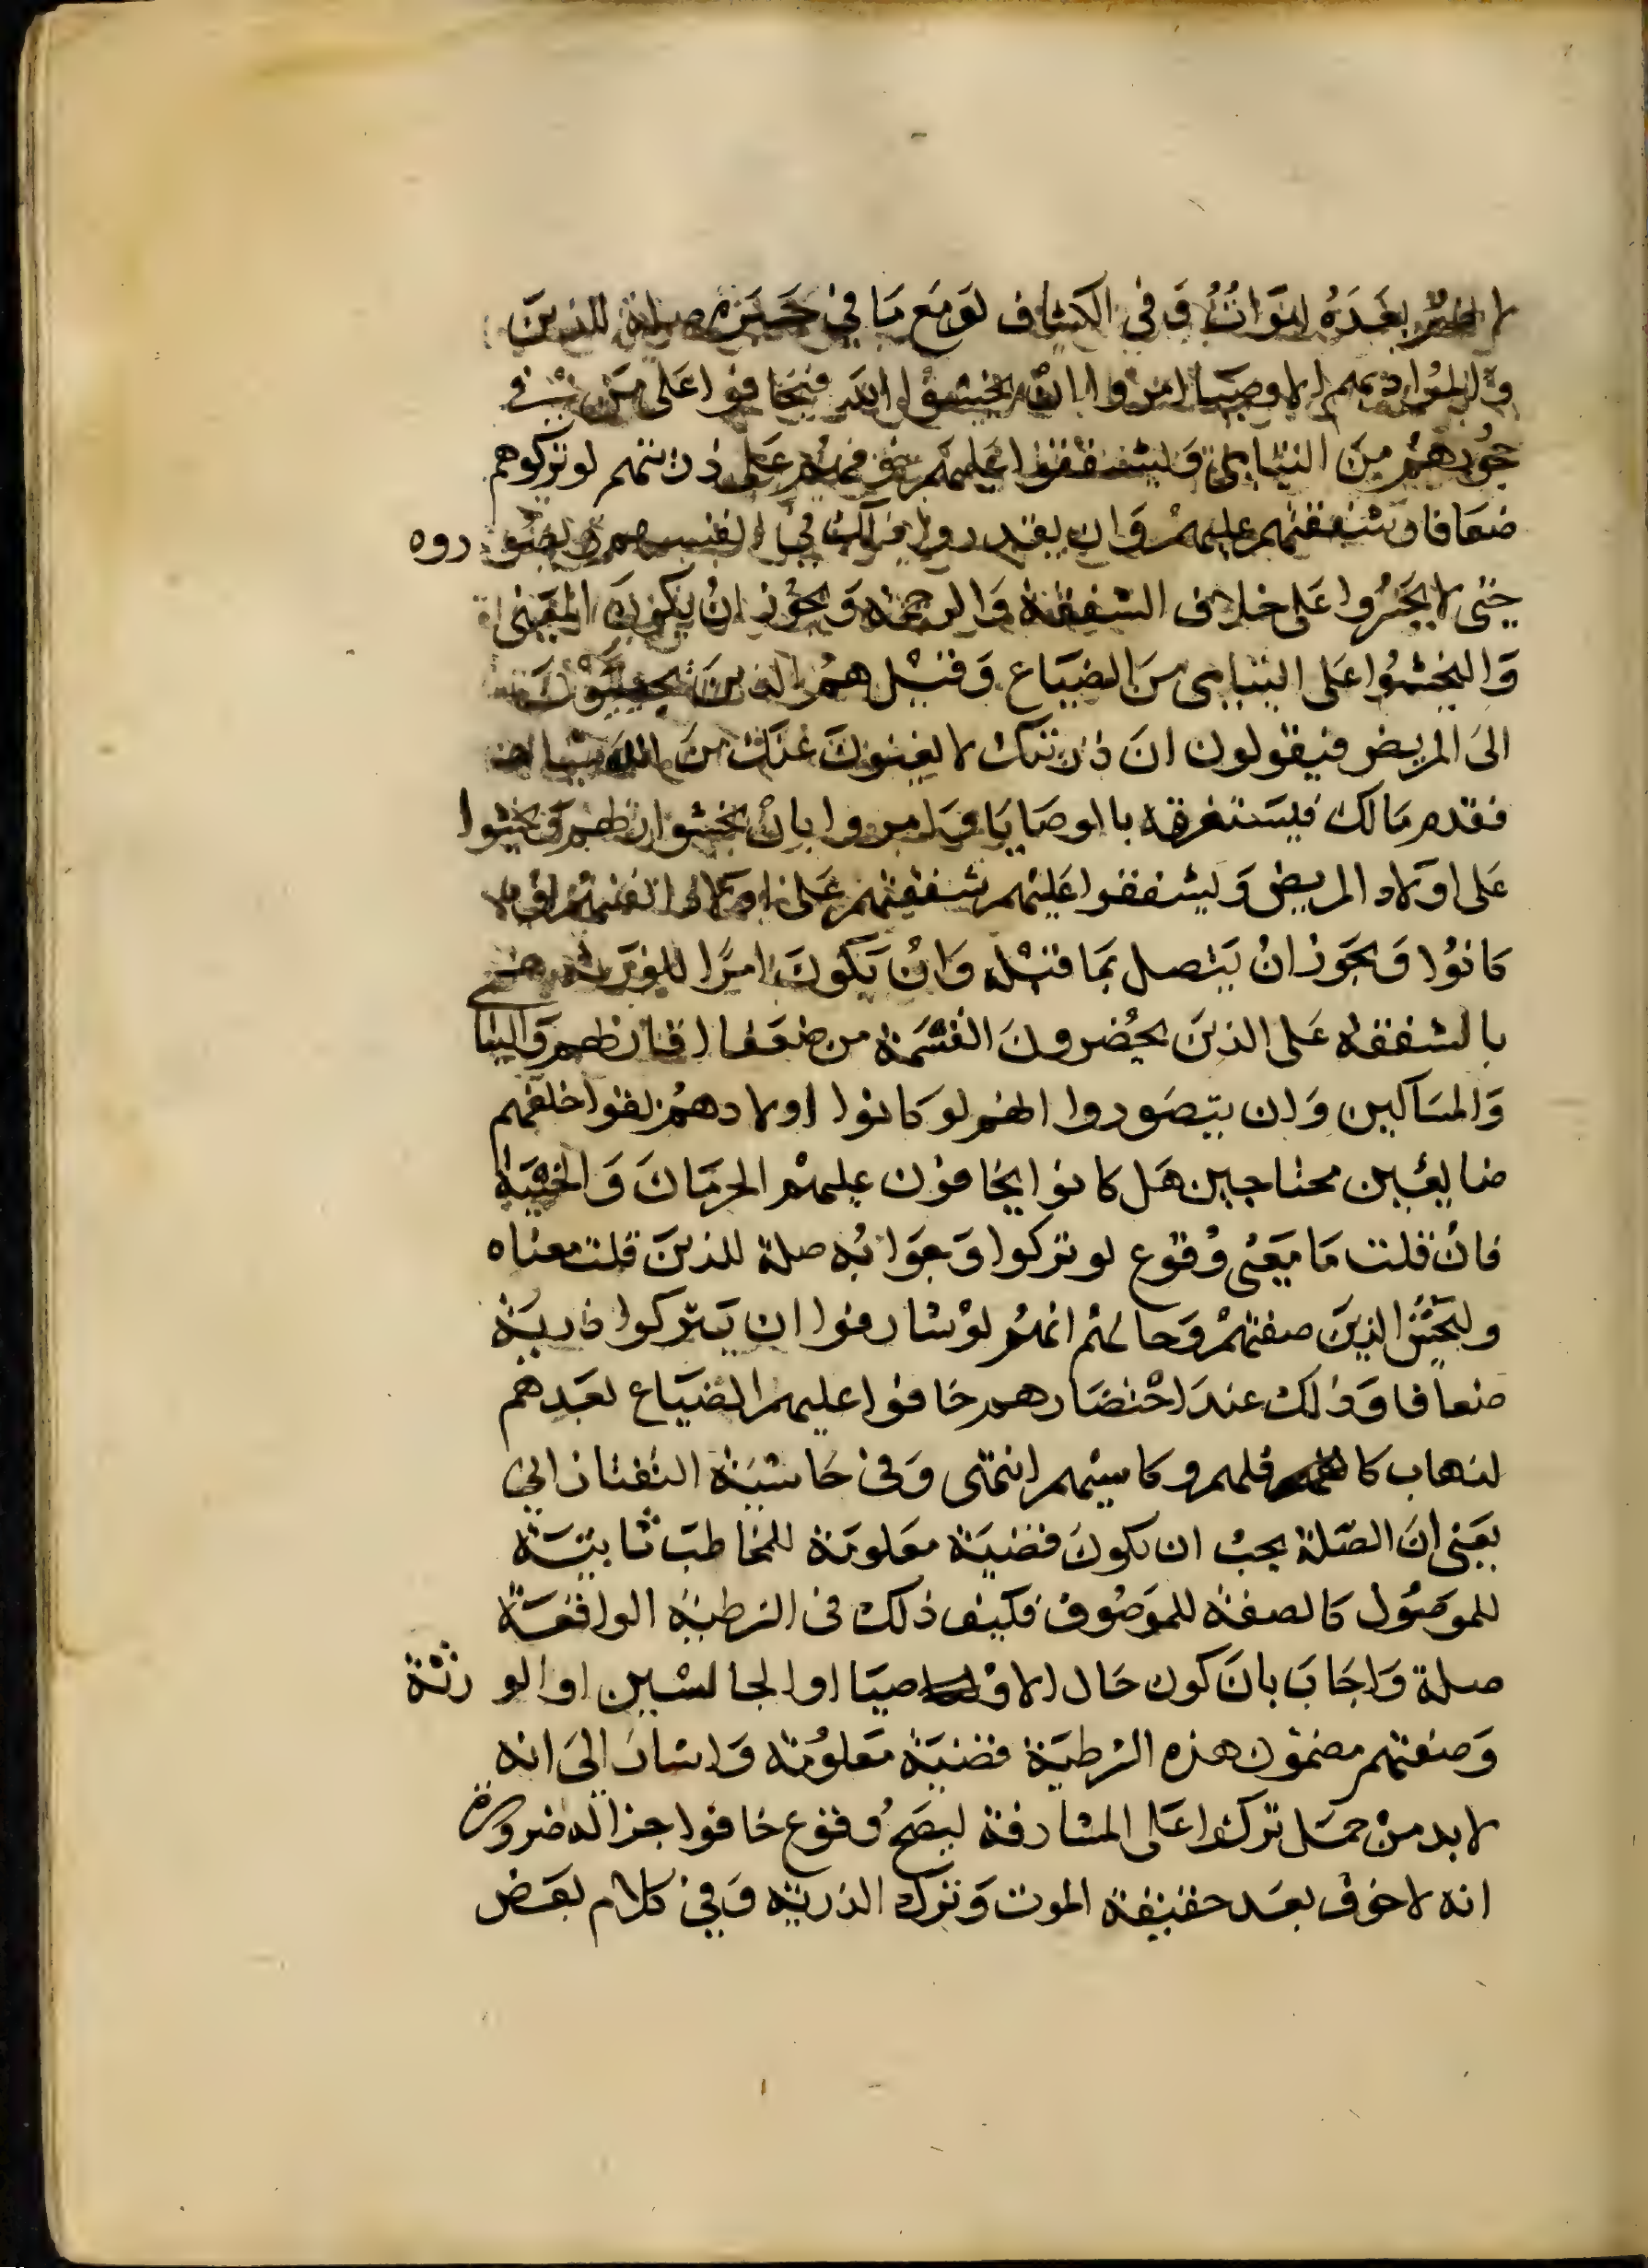 بعده اموات وفي الكشاف لو مع ما في حيزه صلة للذين
والمراد بهم الاوصيا امروا بان يخشوا الله فيخافوا على من في
حجورهم من اليتامى وليشفقوا عليهم خوفهم على ذريتهم لو تركوهم
ضعافا وشفقتهم عليهم وان يقدروا ذلك في انفسهم ويصوروه
حتى لا يجسروا على خلاف الشفقة والرحمة ويجوز ان يكون المعنى
وليخشوا على اليتامى من الضياع وقيل هم الذين يجلسون
الى المريض فيقولون ان ذريتك لا يغنون عنك من الله شيا
فقدم مالك فيستغرقه بالوصايا فامروا بان يخشوا ربهم ويخشوا
على اولاد المريض وليشفقوا عليهم شفقتهم على اولاد انفسهم لو
كانوا ويجوز ان يتصل بما قبله وان يكون امرا للورثة
بالشفقة على الذين يحضرون القسمة من ضعفا اقاربهم واليتامى
والمساكين وان يتصوروا انهم لو كانوا اولادهم بقوا خلفهم
ضايعين محتاجين هل كانوا يخافون عليهم الحرمان والخيبة
فان قلت ما معنى وقوع لو تركوا وجوابه صلة للذين قلت معناه
وليخش الذين صفتهم وحالهم انهم لو شارفوا ان يتركوا ذرية
ضعافا وذلك عند احتضارهم خافوا عليهم الضياع بعدهم
لذهاب كافلهم وكاسبهم انتهى وفي حاشية التفتازاني
يعني ان الصلة يجب ان تكون قضية معلومة للمخاطب ثابتة
للموصول كالصفة للموصوف فكيف ذلك في الشرطية الواقعة
صلة واجاب بان كون حال الاوصيا او الجالسين او الورثة
وصفتهم مضمون هذه الشرطية قضية معلومة واشار الى انه
لا بد من حمل تركوا على المشارفة ليصح وقوع خافوا جزا له ضرورة
انه لا خوف بعد حقيقة الموت وترك الذرية وفي كلام بعض